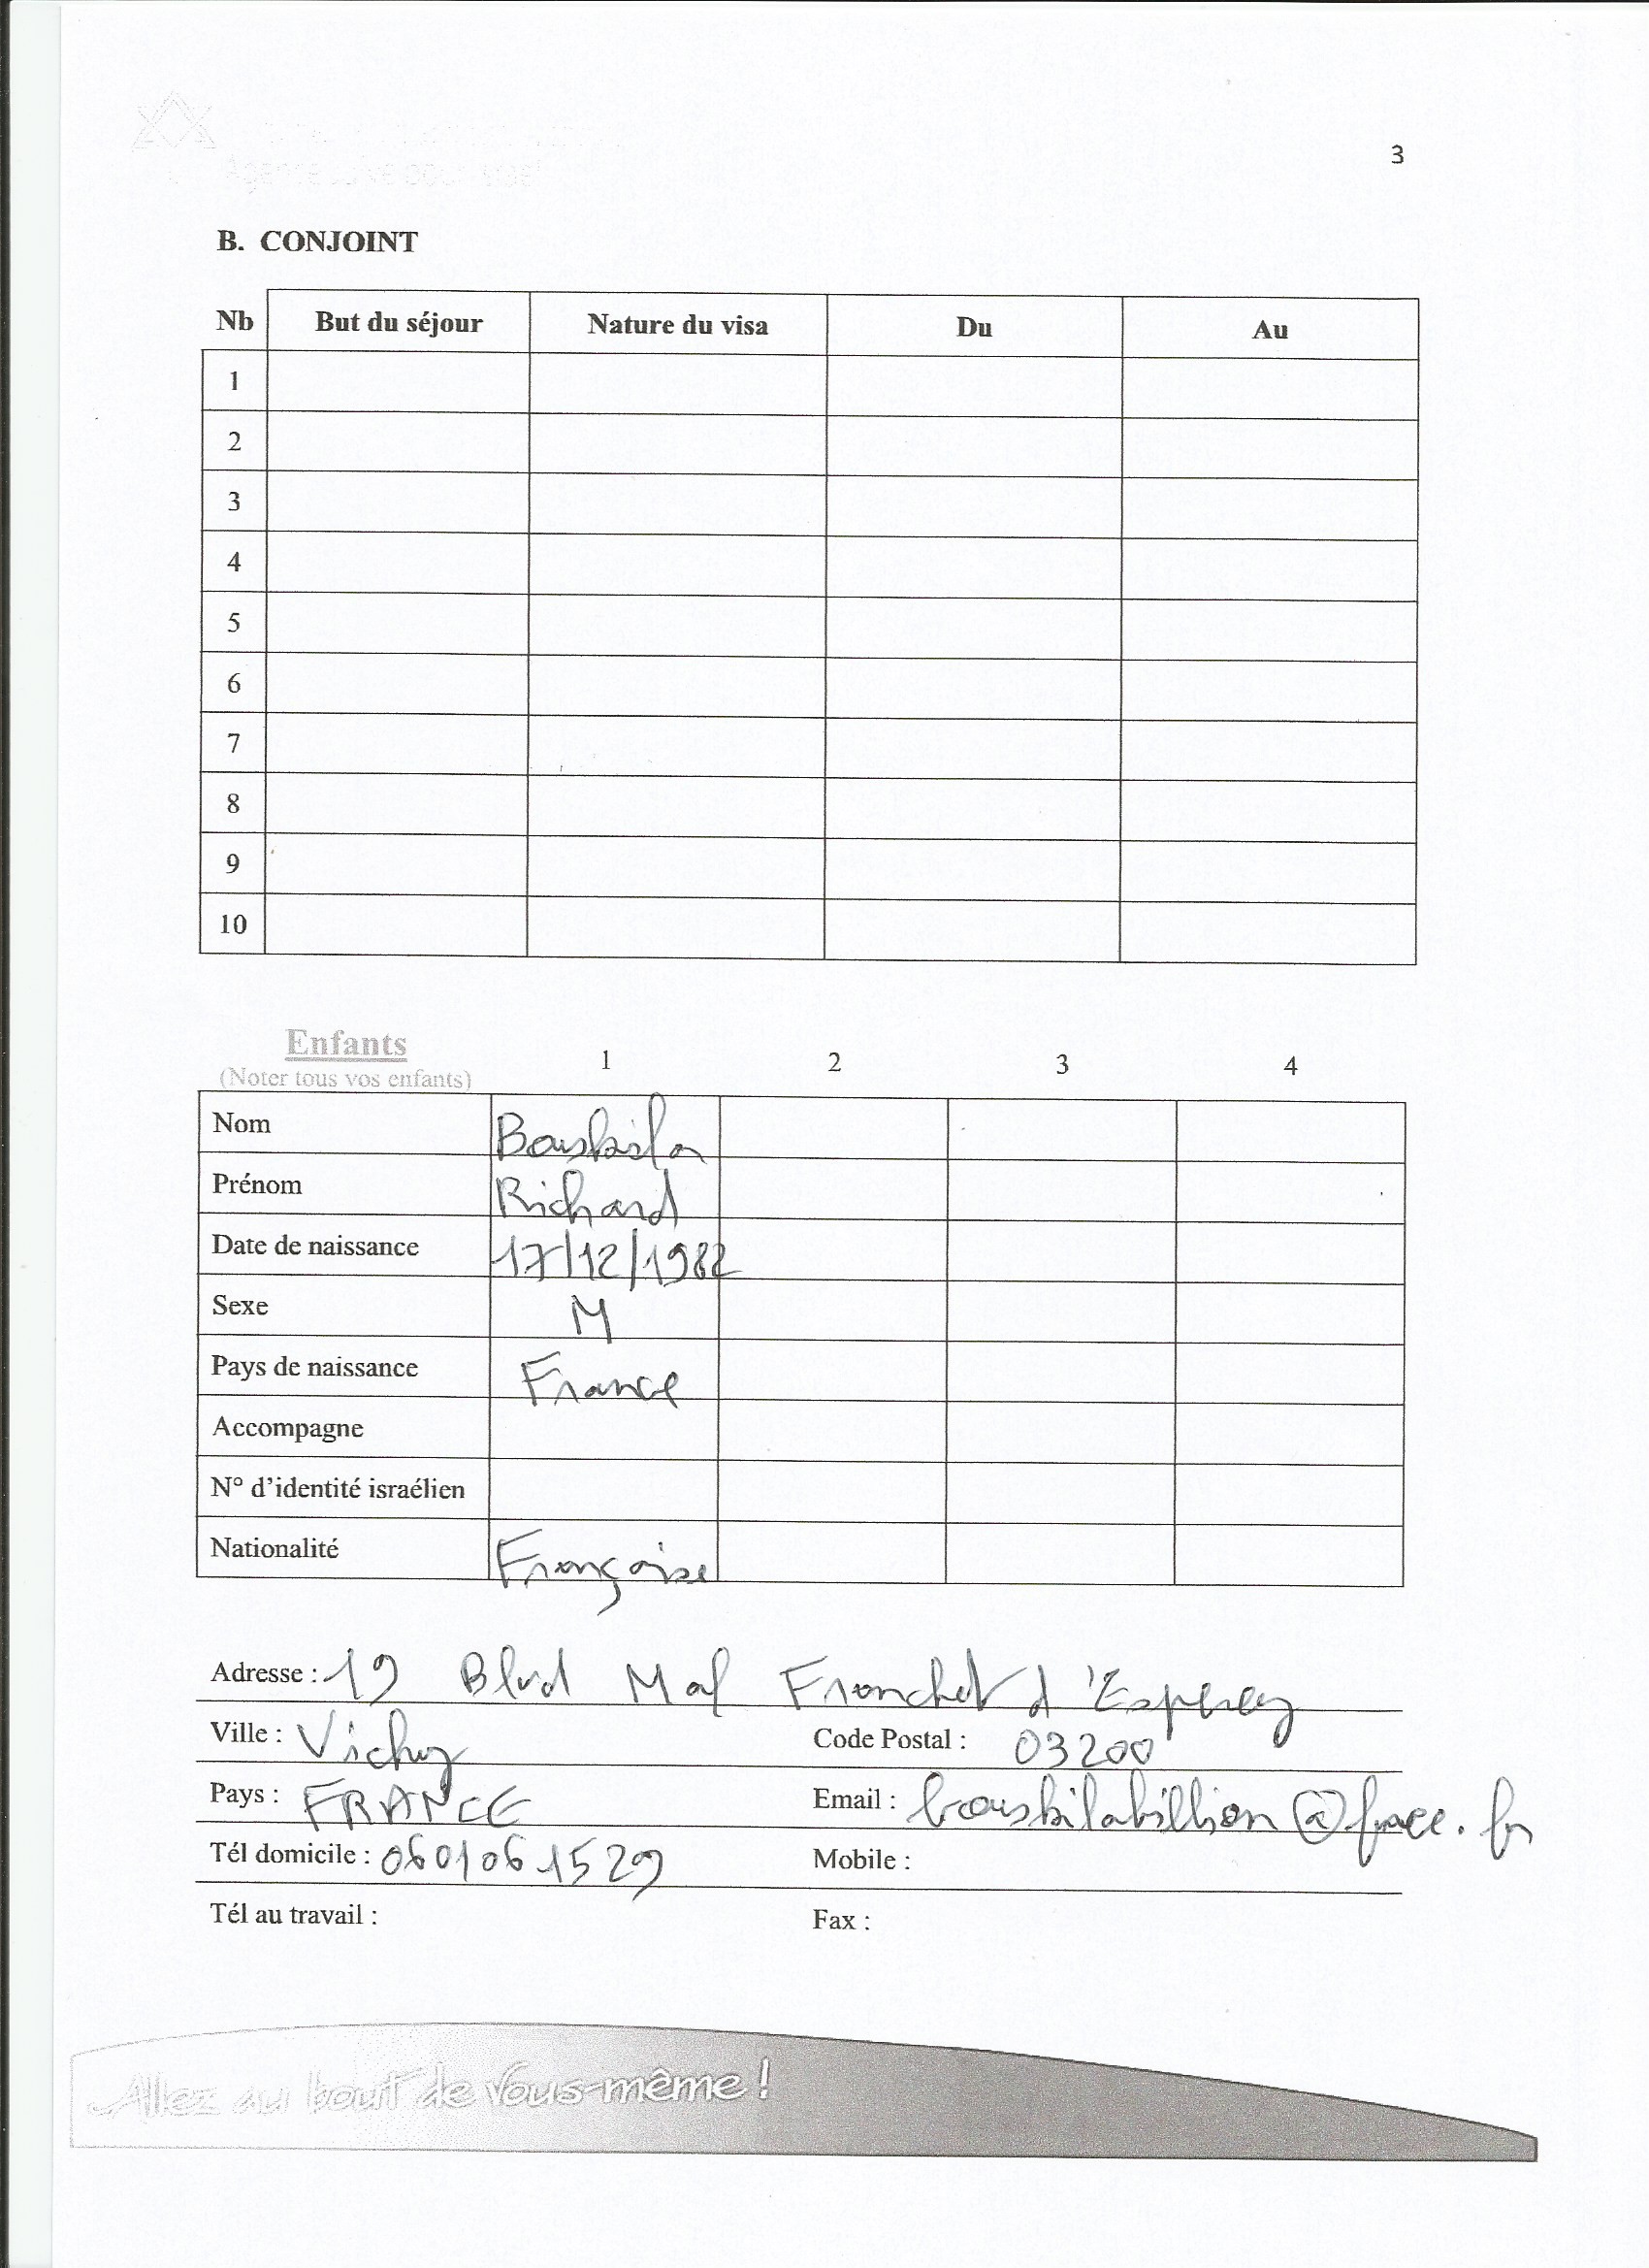 3
Agence Juive pour Israël
B. CONJOINT
Nb But du séjour Nature du visa Du Au
1
2
3
4
5
6
7
8
9
10
Enfants 1 2 3 4
(Noter tous vos enfants)
Nom Bouskila
Prénom Richard
Date de naissance 17/12/1982
Sexe M
Pays de naissance France
Accompagne
N° d'identité israélien
Nationalité Française
Adresse : 19 Blvd Mal Franchet d'Esperey
Ville : Vichy Code Postal : 03200
Pays : FRANCE Email : bouskilabillion@free.fr
Tél domicile : 0601061529 Mobile :
Tél au travail : Fax :
Allez au bout de vous-même !